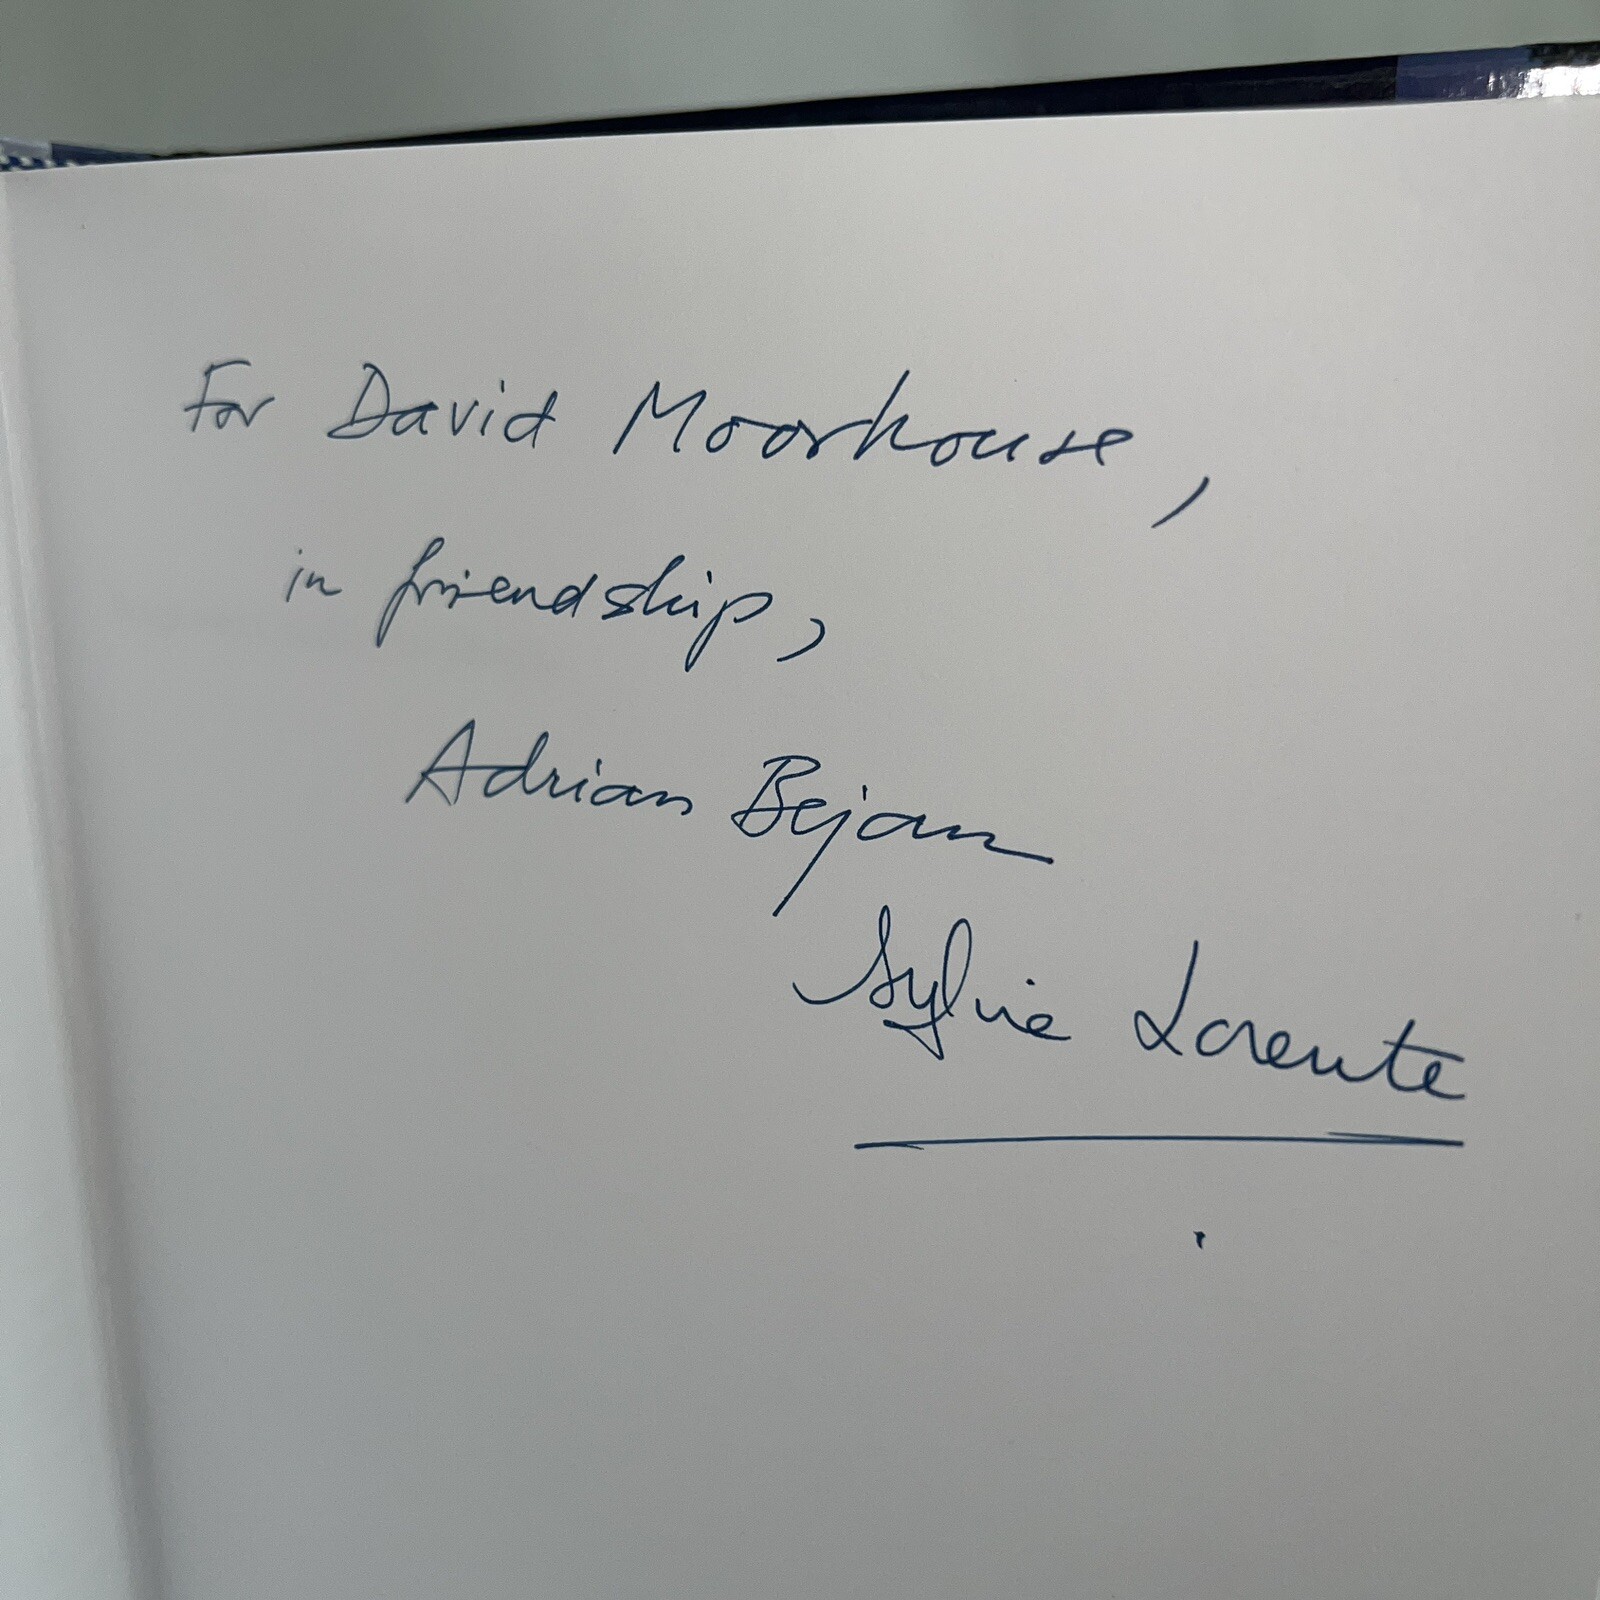 For David Moorhouse,
in friendship,
Adrian Bejan
Sylvie Lorente